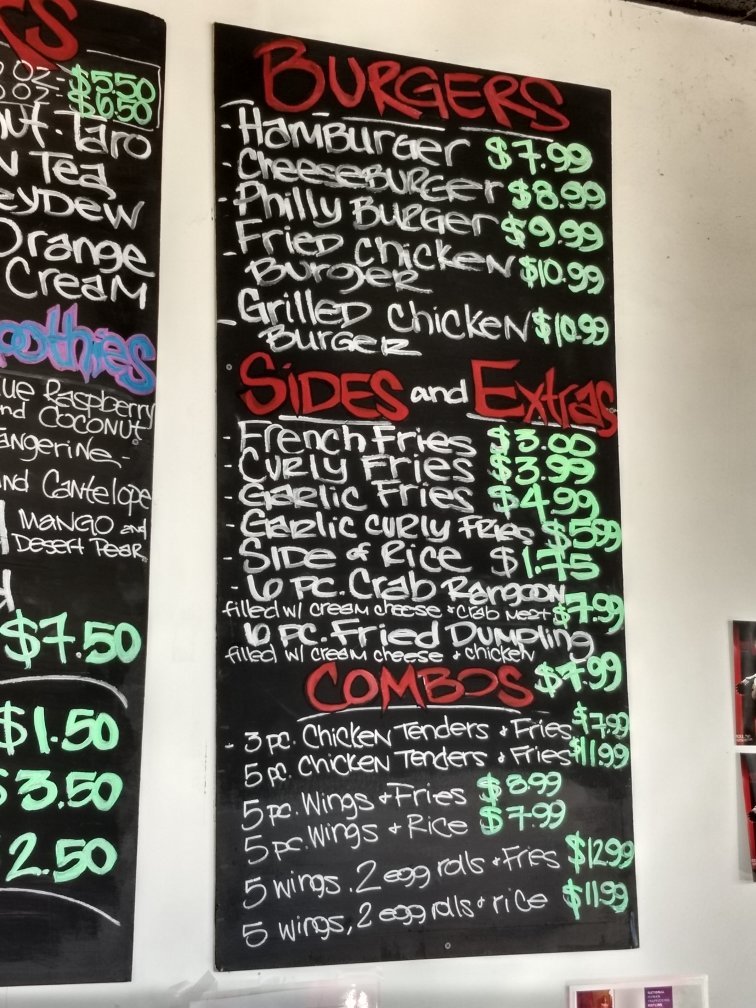 OZ- $5.50
OZ- $6.50
Taro
Tea
Orange
Cream
Raspberry
and Coconut
and Cantelope
Mango and
Desert Pear
$7.50
$1.50
$3.50
2.50
BURGERS
- HamBurger $7.99
- CheeseBurger $8.99
- Philly Burger $9.99
- Fried Chicken $10.99
Burger
- Grilled Chicken $10.99
Burger
SIDES and Extras
- French Fries $3.00
- Curly Fries $3.99
- Garlic Fries $4.99
- Garlic Curly Fries $5.99
- Side of Rice $1.75
- 6 pc. Crab Rangoon
filled w/ cream cheese + crab meat $7.99
6 pc. Fried Dumpling
filled w/ cream cheese + chicken $7.99
COMBOS
- 3 pc. Chicken Tenders + Fries $7.99
5 pc. Chicken Tenders + Fries $11.99
5 pc. Wings + Fries $8.99
5 pc. Wings + Rice $7.99
5 wings, 2 egg rolls + Fries $12.99
5 wings, 2 egg rolls + rice $11.99